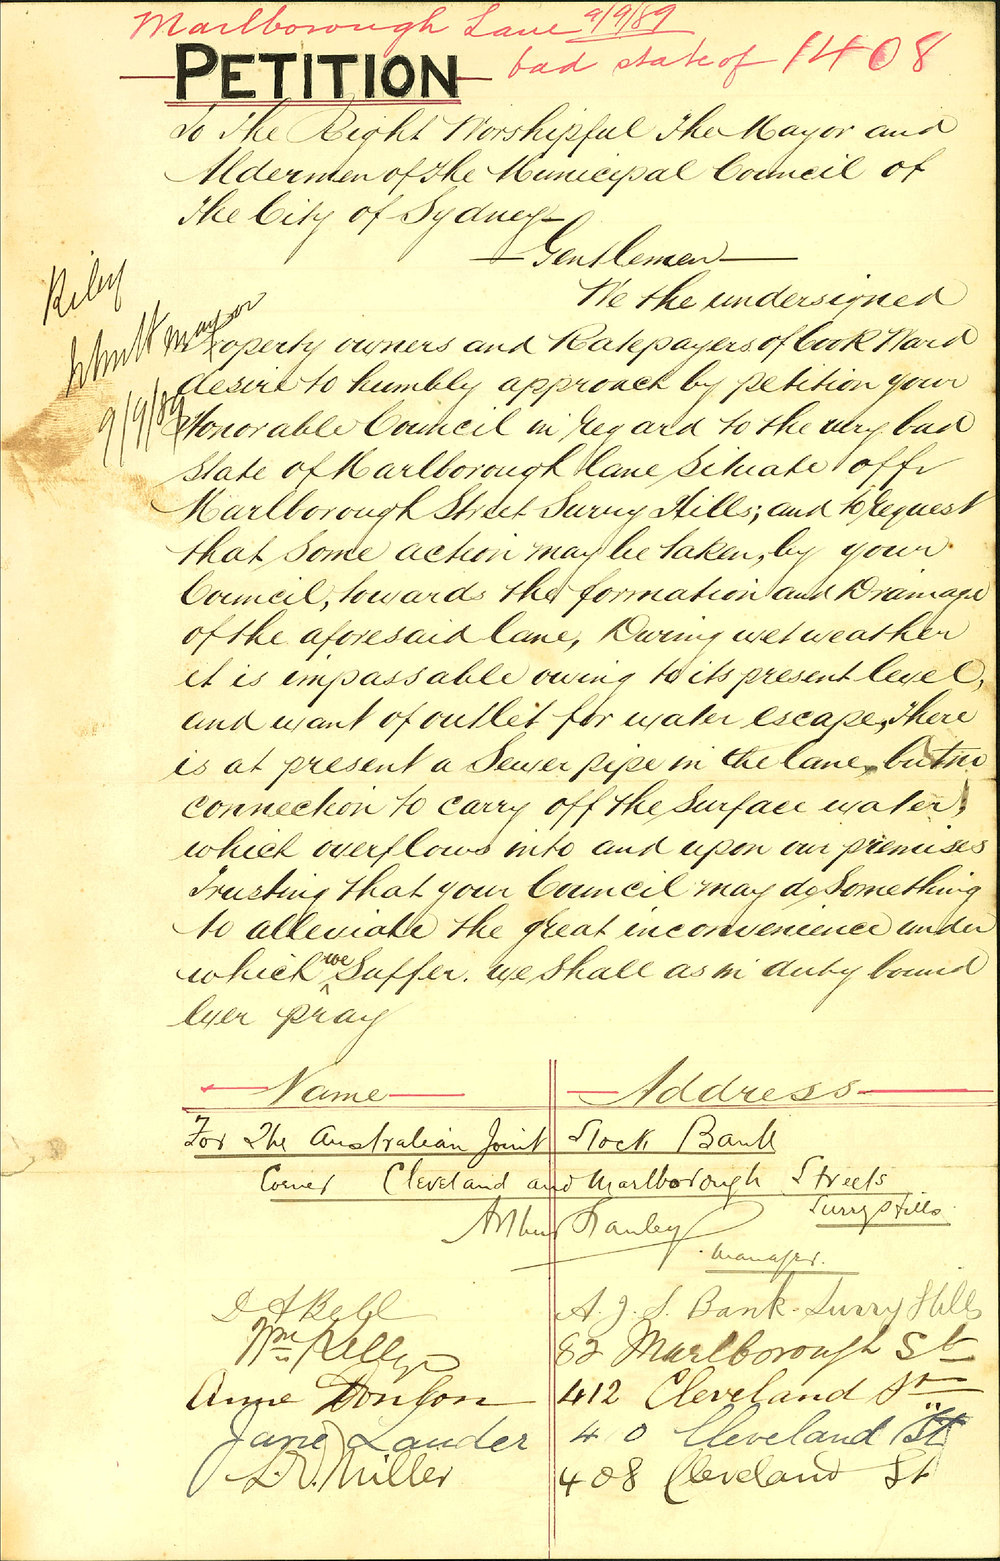 Marlborough Lane 9/9/89
bad state of 1408
PETITION
To The Right Worshipful The Mayor and
Aldermen of the Municipal Council of
The City of Sydney
Gentlemen
We the undersigned
Property owners and Ratepayers of Cook Ward
desire to humbly approach by petition your
Honorable Council in regard to the very bad
state of Marlborough lane situate off
Marlborough Street Surry Hills; and to request
that some action may be taken, by your
Council, towards the formation and Drainage
of the aforesaid lane, During wet weather
it is impassable owing to its present level,
and want of outlet for water escape, There
is at present a Sewer pipe in the lane, but no
connection to carry off the surface water,
which overflows into and upon our premises
Trusting that your Council may do Something
to alleviate the great inconvenience under
which we Suffer. we shall as in duty bound
Ever pray
Riley
Mayor
9/9/89
Name Address
For The Australian Joint Stock Bank
Corner Cleveland and Marlborough Streets
Surry Hills
Arthur
Manager.
A. J. S. Bank. Surry Hills
Wm Kelly 82 Marlborough St
Anne 412 Cleveland St
Jane Lauder 4 0 Cleveland St
Miller 408 Cleveland St